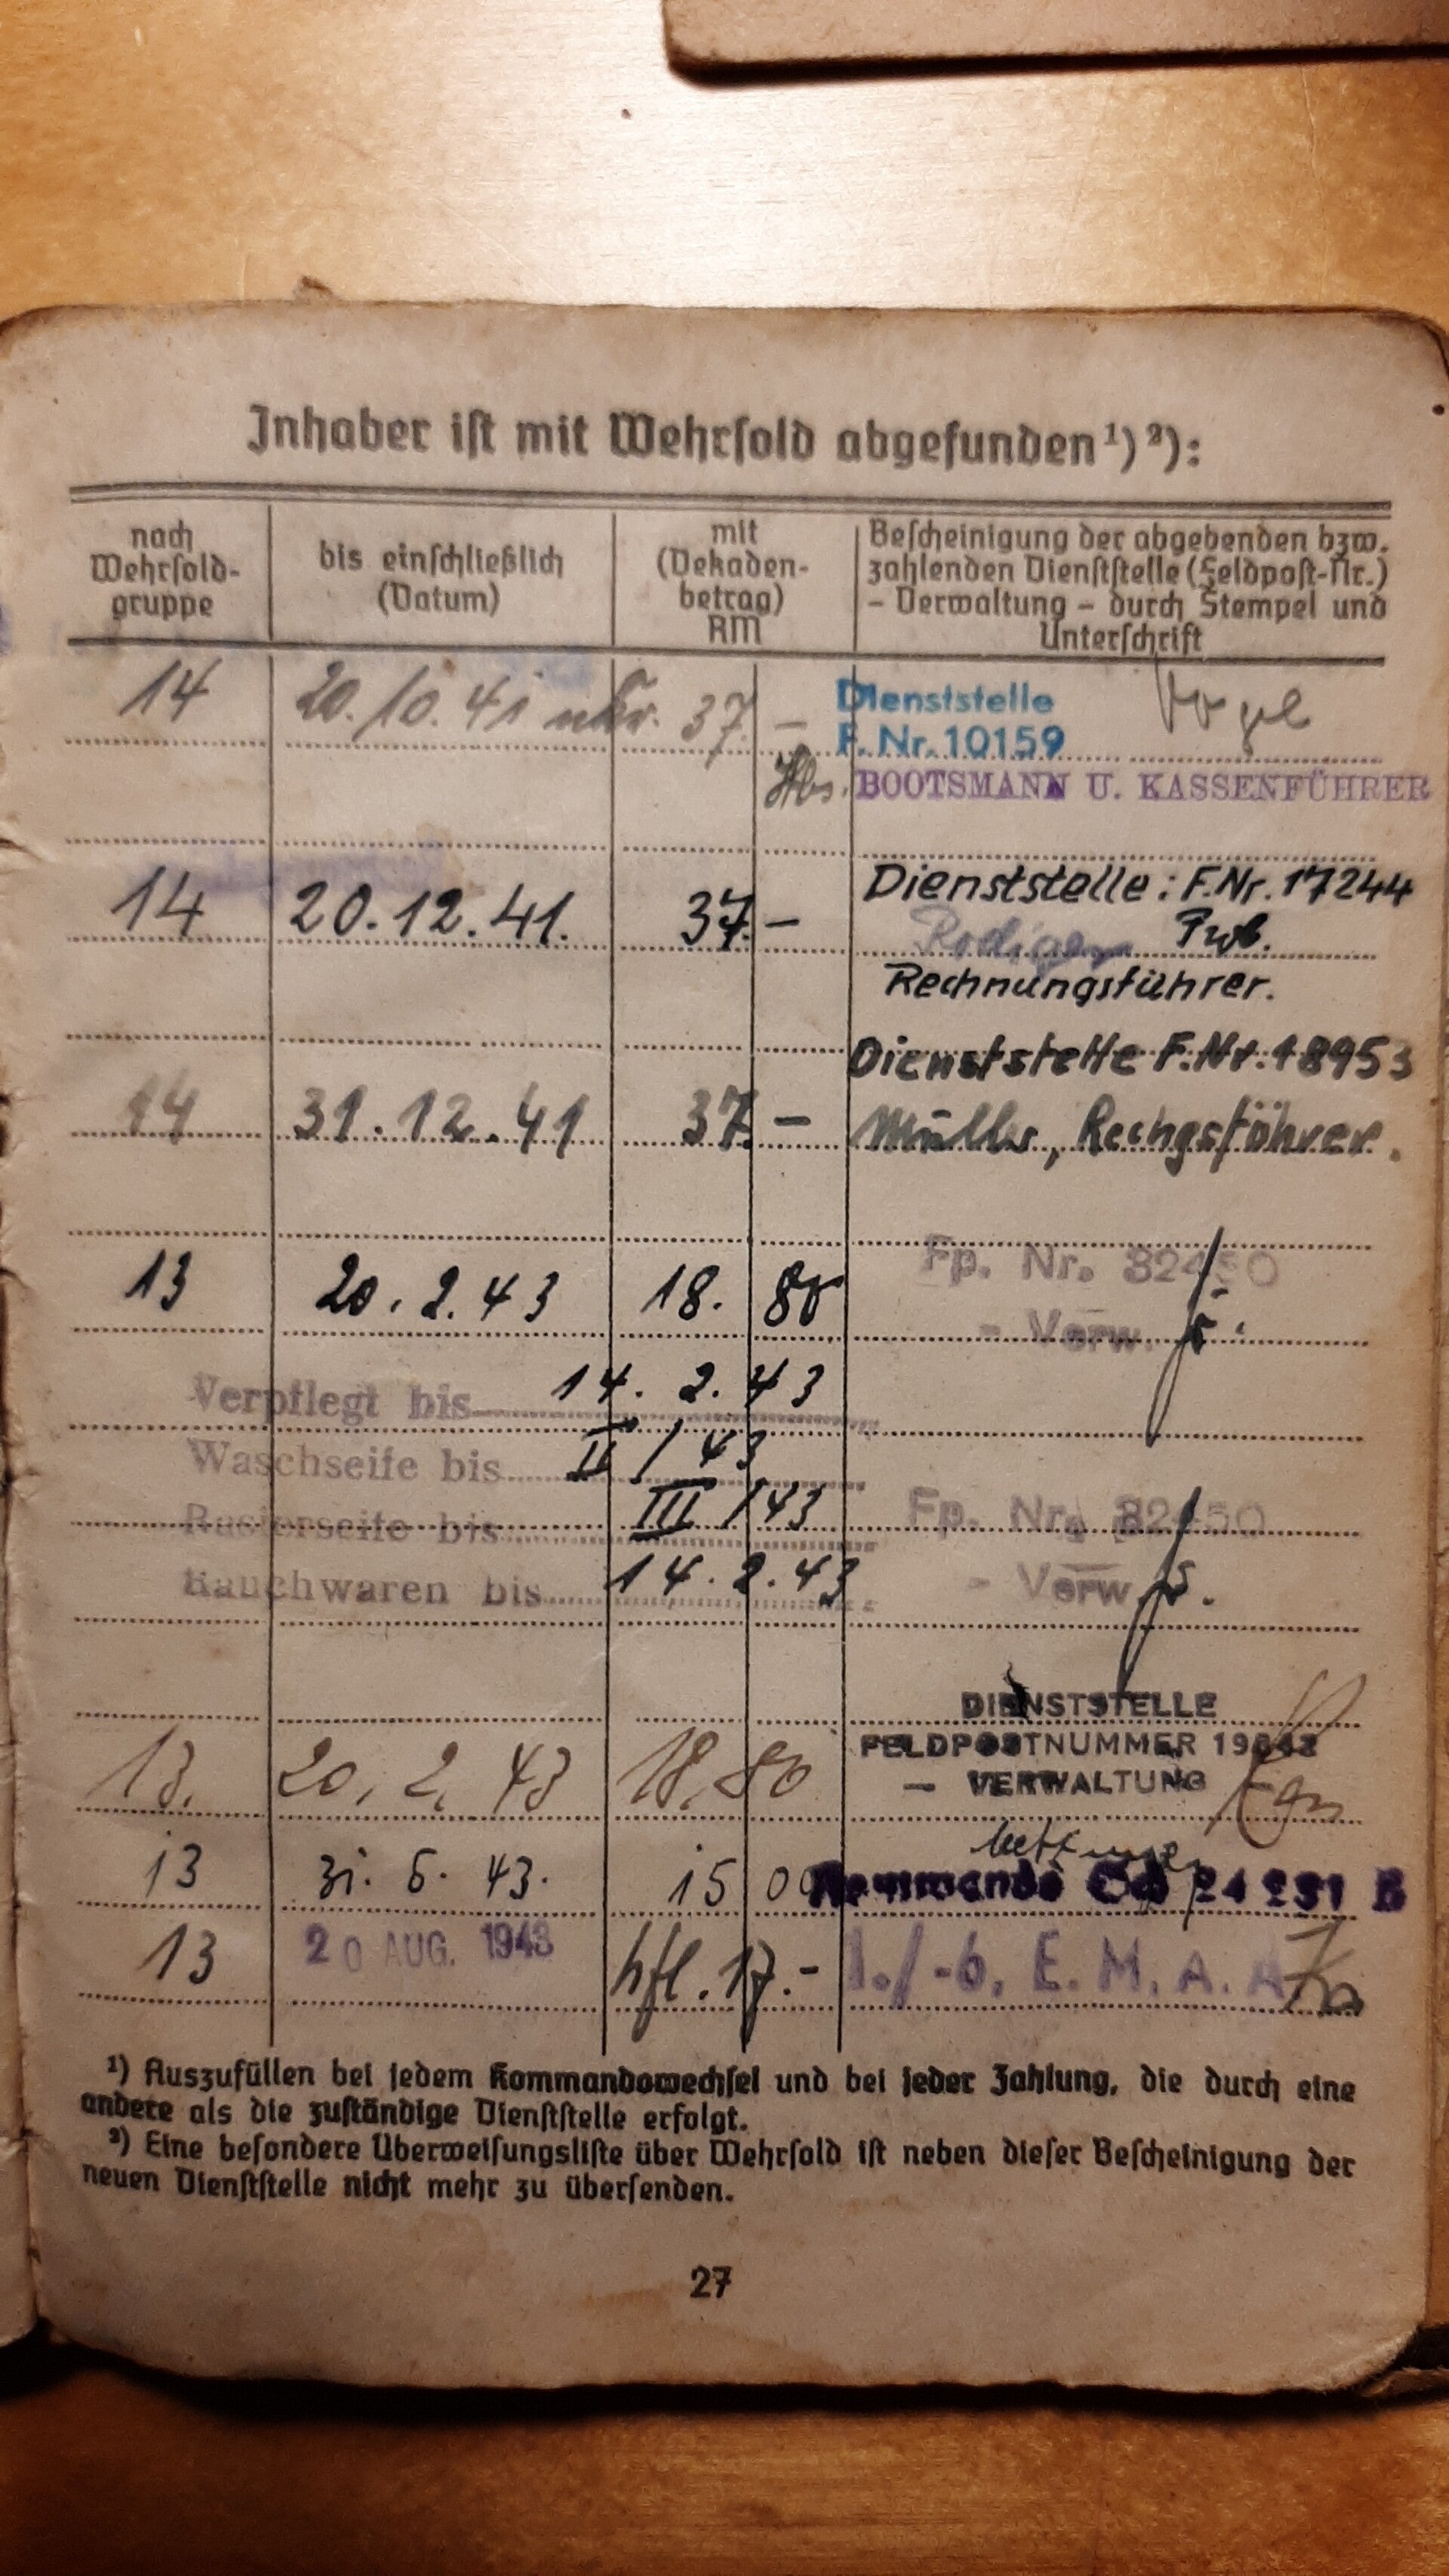 Inhaber ist mit Wehrsold abgefunden¹)²):
nach Wehrsold-gruppe
bis einschließlich (Datum)
mit (Dekaden-betrag) RM
Bescheinigung der abgebenden bzw. zahlenden Dienststelle (Feldpost-Nr.) – Verwaltung – durch Stempel und Unterschrift
14 20.10.41 37.– Dienststelle Vogel
F. Nr. 10159
BOOTSMANN U. KASSENFÜHRER
Dienststelle: F.Nr. 17244
14 20.12.41. 37.–
Rechnungsführer.
Dienststelle F.Nr. 18953
14 31.12.41 37.– Müller, Rechgsführer.
Fp. Nr.
13 20.2.43 18. 80
- Verw.
Verpflegt bis 14.2.43
Waschseife bis II/43
Rasierseife bis III/43 Fp. Nr.
Rauchwaren bis 14.2.43 - Verw.
DIENSTSTELLE
FELDPOSTNUMMER
13. 20.2.43 18.80 – VERWALTUNG
13 31.5.43. 15 00 Kommando
13 20 AUG. 1943 hfl. 17.– E. M. A. A.
¹) Auszufüllen bei jedem Kommandowechsel und bei jeder Zahlung, die durch eine
andere als die zuständige Dienststelle erfolgt.
²) Eine besondere Überweisungsliste über Wehrsold ist neben dieser Bescheinigung der
neuen Dienststelle nicht mehr zu übersenden.
27